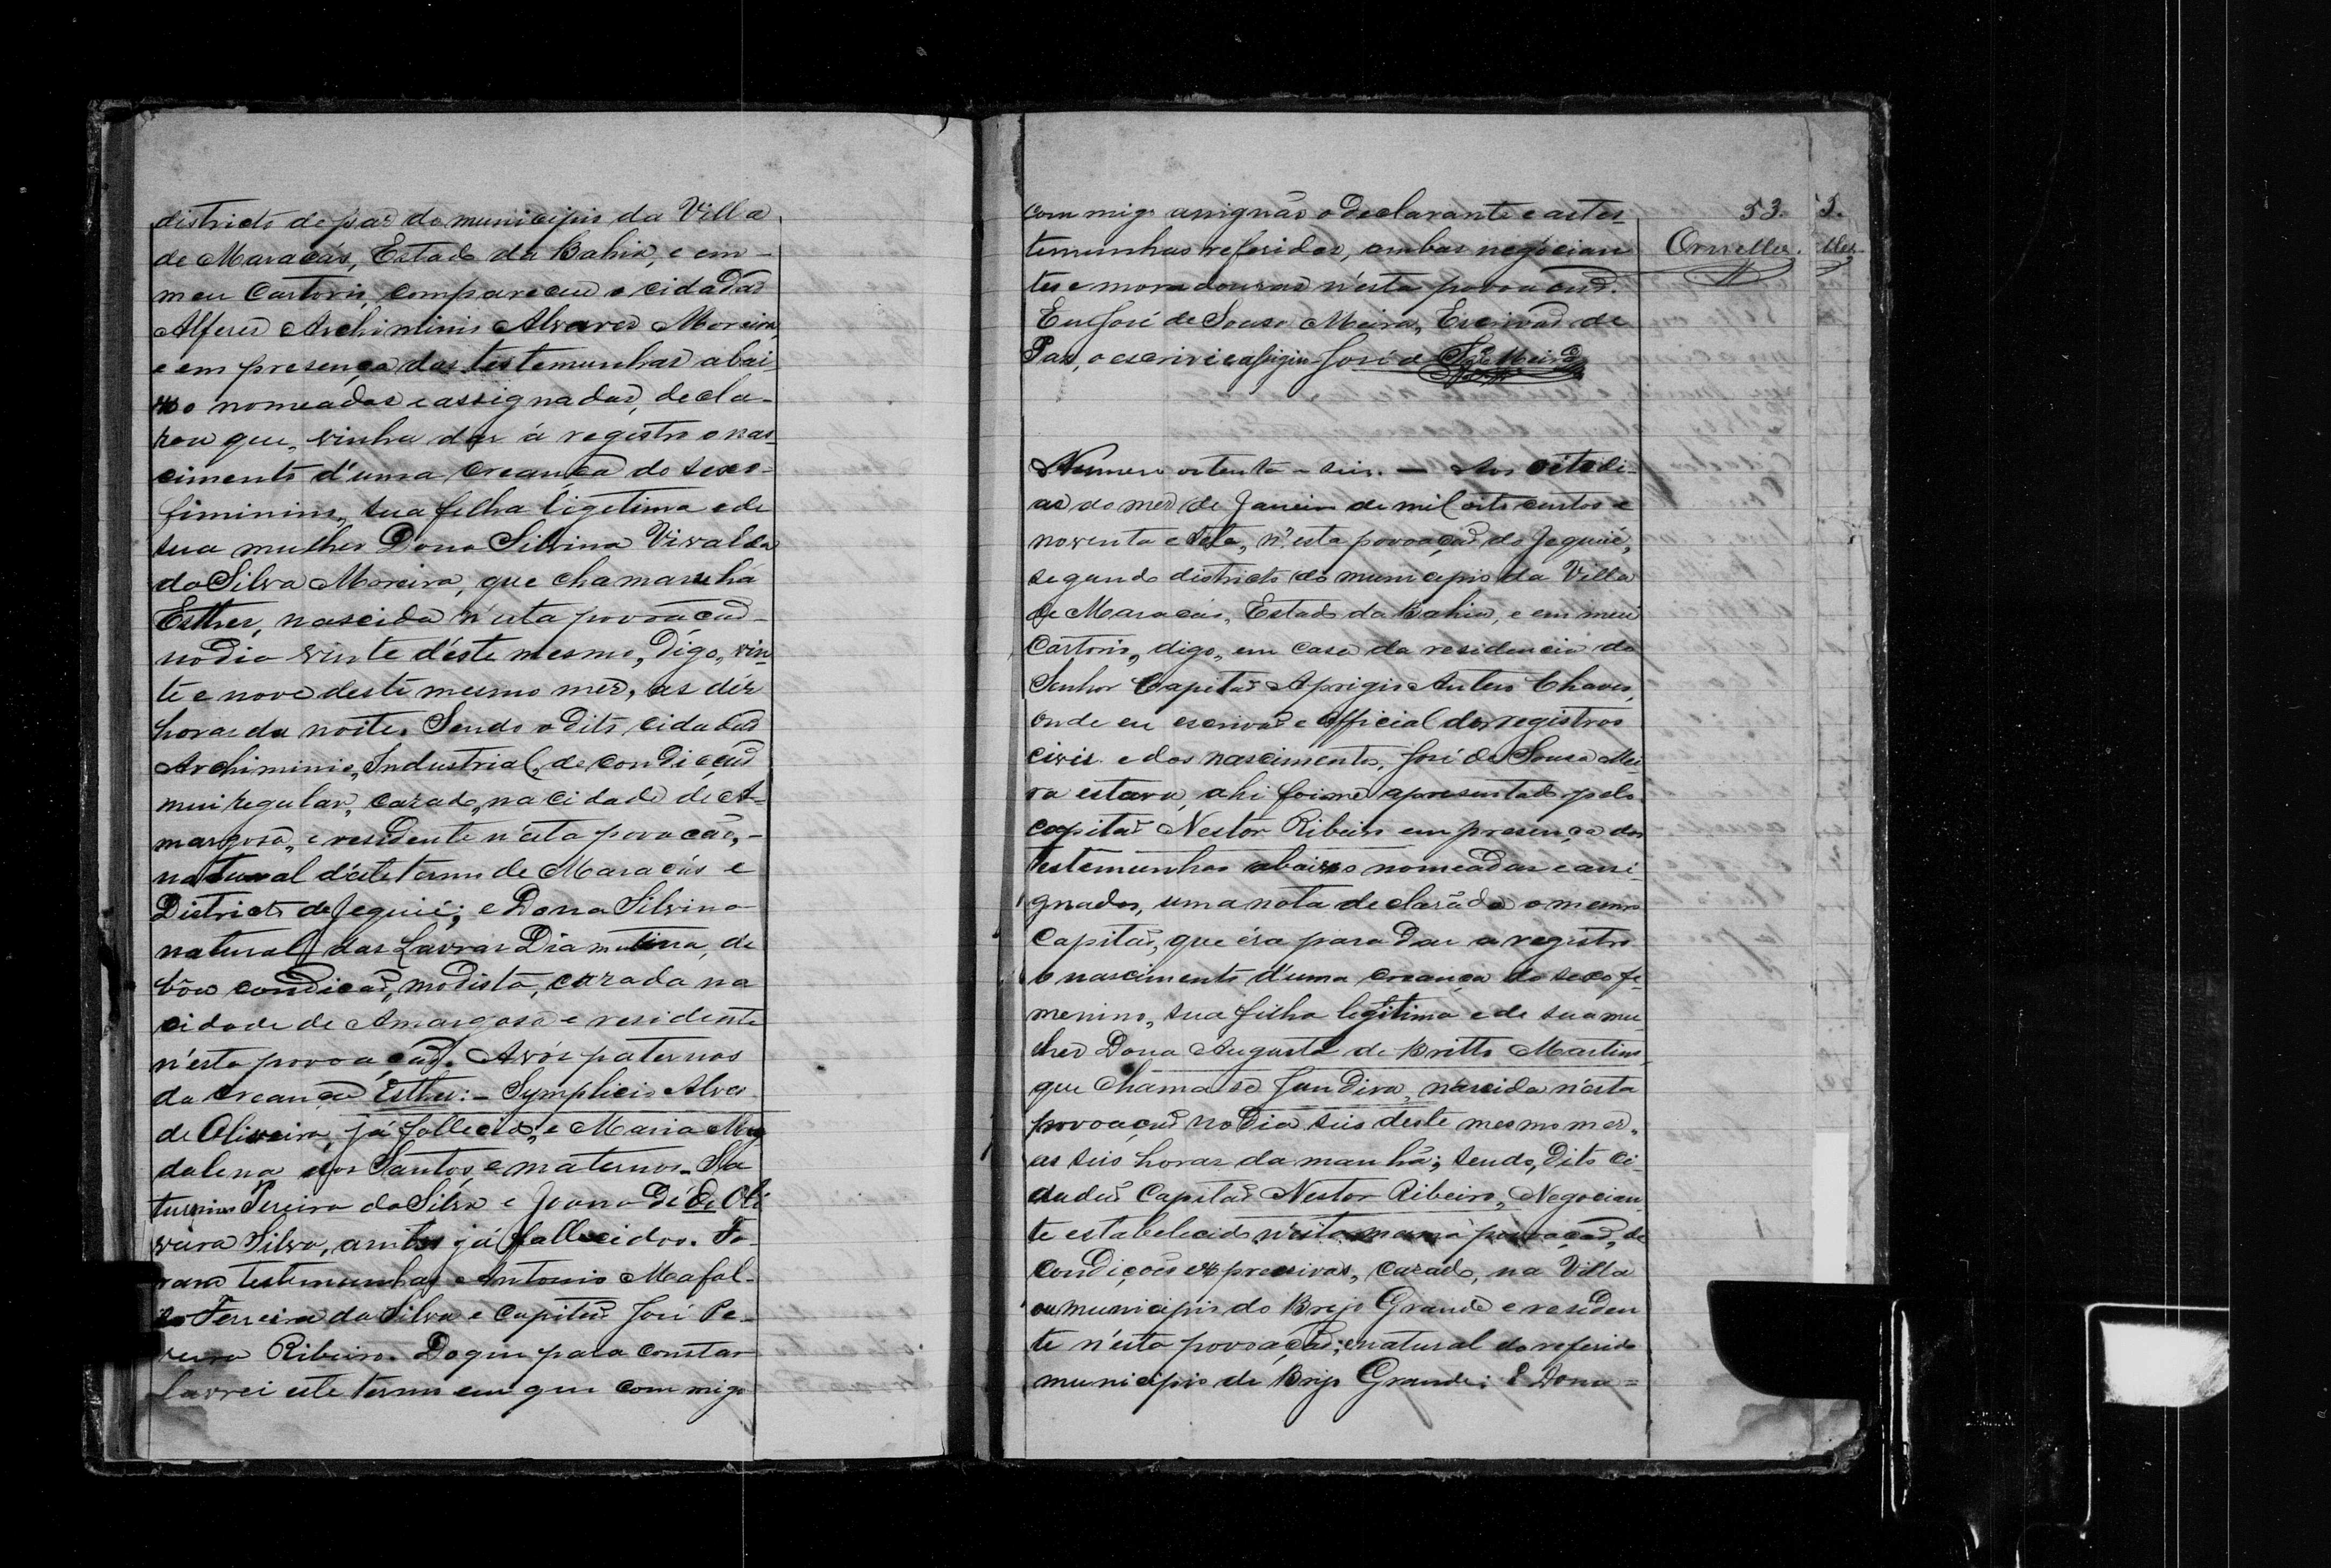 districto de paz do municipio da Villa
de Maracás, Estado da Bahia, e em
meu Cartorio, compareceu o cidadão
Alferes Archiminio Alvares Moreira
e em presença das testemunhas abai
xo nomeadas e assignadas, decla-
rou que, vinha dar á registro o nas-
cimento d'uma creança do sexo
fiminino, sua filha ligetima e de
sua mulher Dona Silvina Vivalda
da Silva Moreira, que chamarse há
Esther, nascida n'esta povoacão
no dia vinte d'este mesmo, digo, vin-
te e nove deste mesmo mez, as déz
horas da noite. Sendo o dito cidadão
Archiminio, Industrial, de condicção
mui regular, casado, na cidade de A-
margosa, e residente n'esta povoacão,
natural d'este termo de Maracás e
Districto de Jequié; e Dona Silvina
natural das Lavras Diamantina, de
bôa condicão, modista, cazada na
cidade de Amargosa e residente
n'esta povoação. Avós paternos
da creança Esther: - Symplicio Alves
de Oliveira, já fallecido, e Maria Mag
dalena dos Santos, e maternos. Sa
turnino Pereira da Silva e Joana de Oli
veira Silva, ambos já fallecidos. Fo-
ram testemunhas Antonio Mafal-
do Ferreira da Silva e Capitão José Pe-
reira Ribeiro. Do que para constar
lavrei este termo em que com migo
com migo assignão o declarante e as tes-
temunhas referidas, ambas negocian
tes e moradouras n'esta povoacão.
Eu José de Souza Meira, Escrivão de
Paz, o escrivi e assigno José de Sza Meira
53.
Ornellas.
Numero oitenta e seis. — Aos oito di-
as do mez de Janeiro de mil oito centos e
noventa e sete, n'esta povoação do Jequié,
segundo districto do municipio da Villa
de Maracás, Estado da Bahia, e em meu
Cartorio, digo, em casa da residencia do
Senhor Capitão Aprigio Antero Chaves,
onde eu escrivão e official dos registros
civis e dos nascimentos, José de Souza Mei
ra estava, ahi foi me apresentado pelo
capitão Nestor Ribeiro em presença das
testemunhas abaixo nomeadas e assi-
gnadas, uma nota declarãdo o mesmo
Capitão, que éra para dar a registro
o nascimento d'uma creança do sexo fe-
menino, sua filha legitima e de sua mu-
lher Dona Augusta de Britto Martins,
que chama se Jandira, nascida n'esta
povoação no dia seis deste mesmo mez,
as seis horas da manhã; sendo, dito ci-
dadão Capitão Nestor Ribeiro, Negocian
te estabelecido n'esta mesma povoação, de
condições expressivas, casado, na Villa
ou municipio do Brejo Grande e residen
te n'esta povoação; e natural do referido
municipio de Brejo Grande; E Dona=